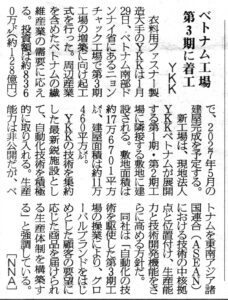 ベトナム工場
第3期に着工
YKK
衣料用ファスナー製
造大手のYKKは1月
29日、ベトナム南部ド
ンナイ省にあるニョン
チャック工場で第3期
工場の増築に向け起工
式を行った。周辺産業
を含めたベトナムの繊
維産業の需要に応え
る。投資額は約836
0万㌦(約128億円)
で、2027年5月の
建屋完成を予定する。
新工場は、現地法人
YKKベトナムが展開
する第1期・第2期工
場に隣接する敷地に建
設される。敷地面積は
約17万6701平方
㍍、建屋面積は約11万
460平方㍍。
YKKの技術を集約
した最新鋭施設とし
て、自動化技術を積極
的に取り入れる。生産
能力は非公開だが、ベ
トナムを東南アジア諸
国連合(ASEAN)
における技術の中核拠
点と位置付け、生産能
力と技術開発機能をさ
らに高める方針だ。
同社は「自動化の技
術を駆使した第3期工
場の操業により、グロ
ーバルブランドをはじ
めとした顧客の要望に
応じた商品を届けられ
る生産体制を構築す
る」と強調している。
【NNA】